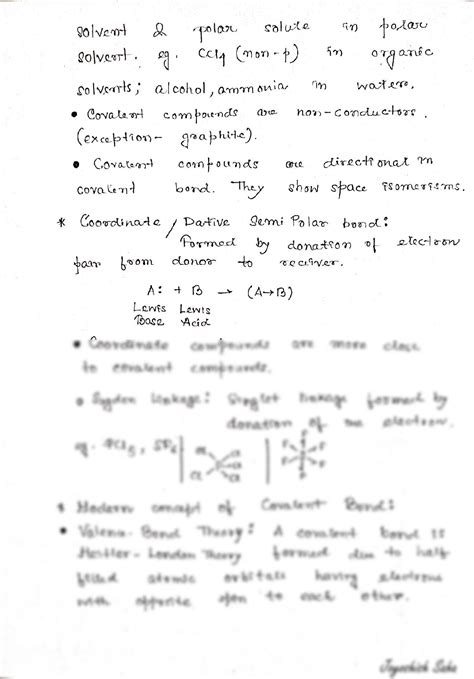 solvent & polar solute in polar
solvent. eg. CCl4 (non-p) in organic
solvents; alcohol, ammonia in water.
• Covalent compounds are non-conductors.
(exception- graphite).
• Covalent compounds are directional in
covalent bond. They show space isomerisms.
* Coordinate / Dative Semi Polar bond:
Formed by donation of electron
pair from donor to receiver.
A: + B → (A→B)
Lewis Lewis
Base Acid
• Coordinate compounds are more close
to covalent compounds.
• Sugden linkage: Singlet linkage formed by
donation of one electron.
eg. PCl5, SF6
* Modern concept of Covalent Bond:
• Valence Bond Theory: A covalent bond is
Heitler-London Theory formed due to half
filled atomic orbitals having electrons
with opposite spin to each other.